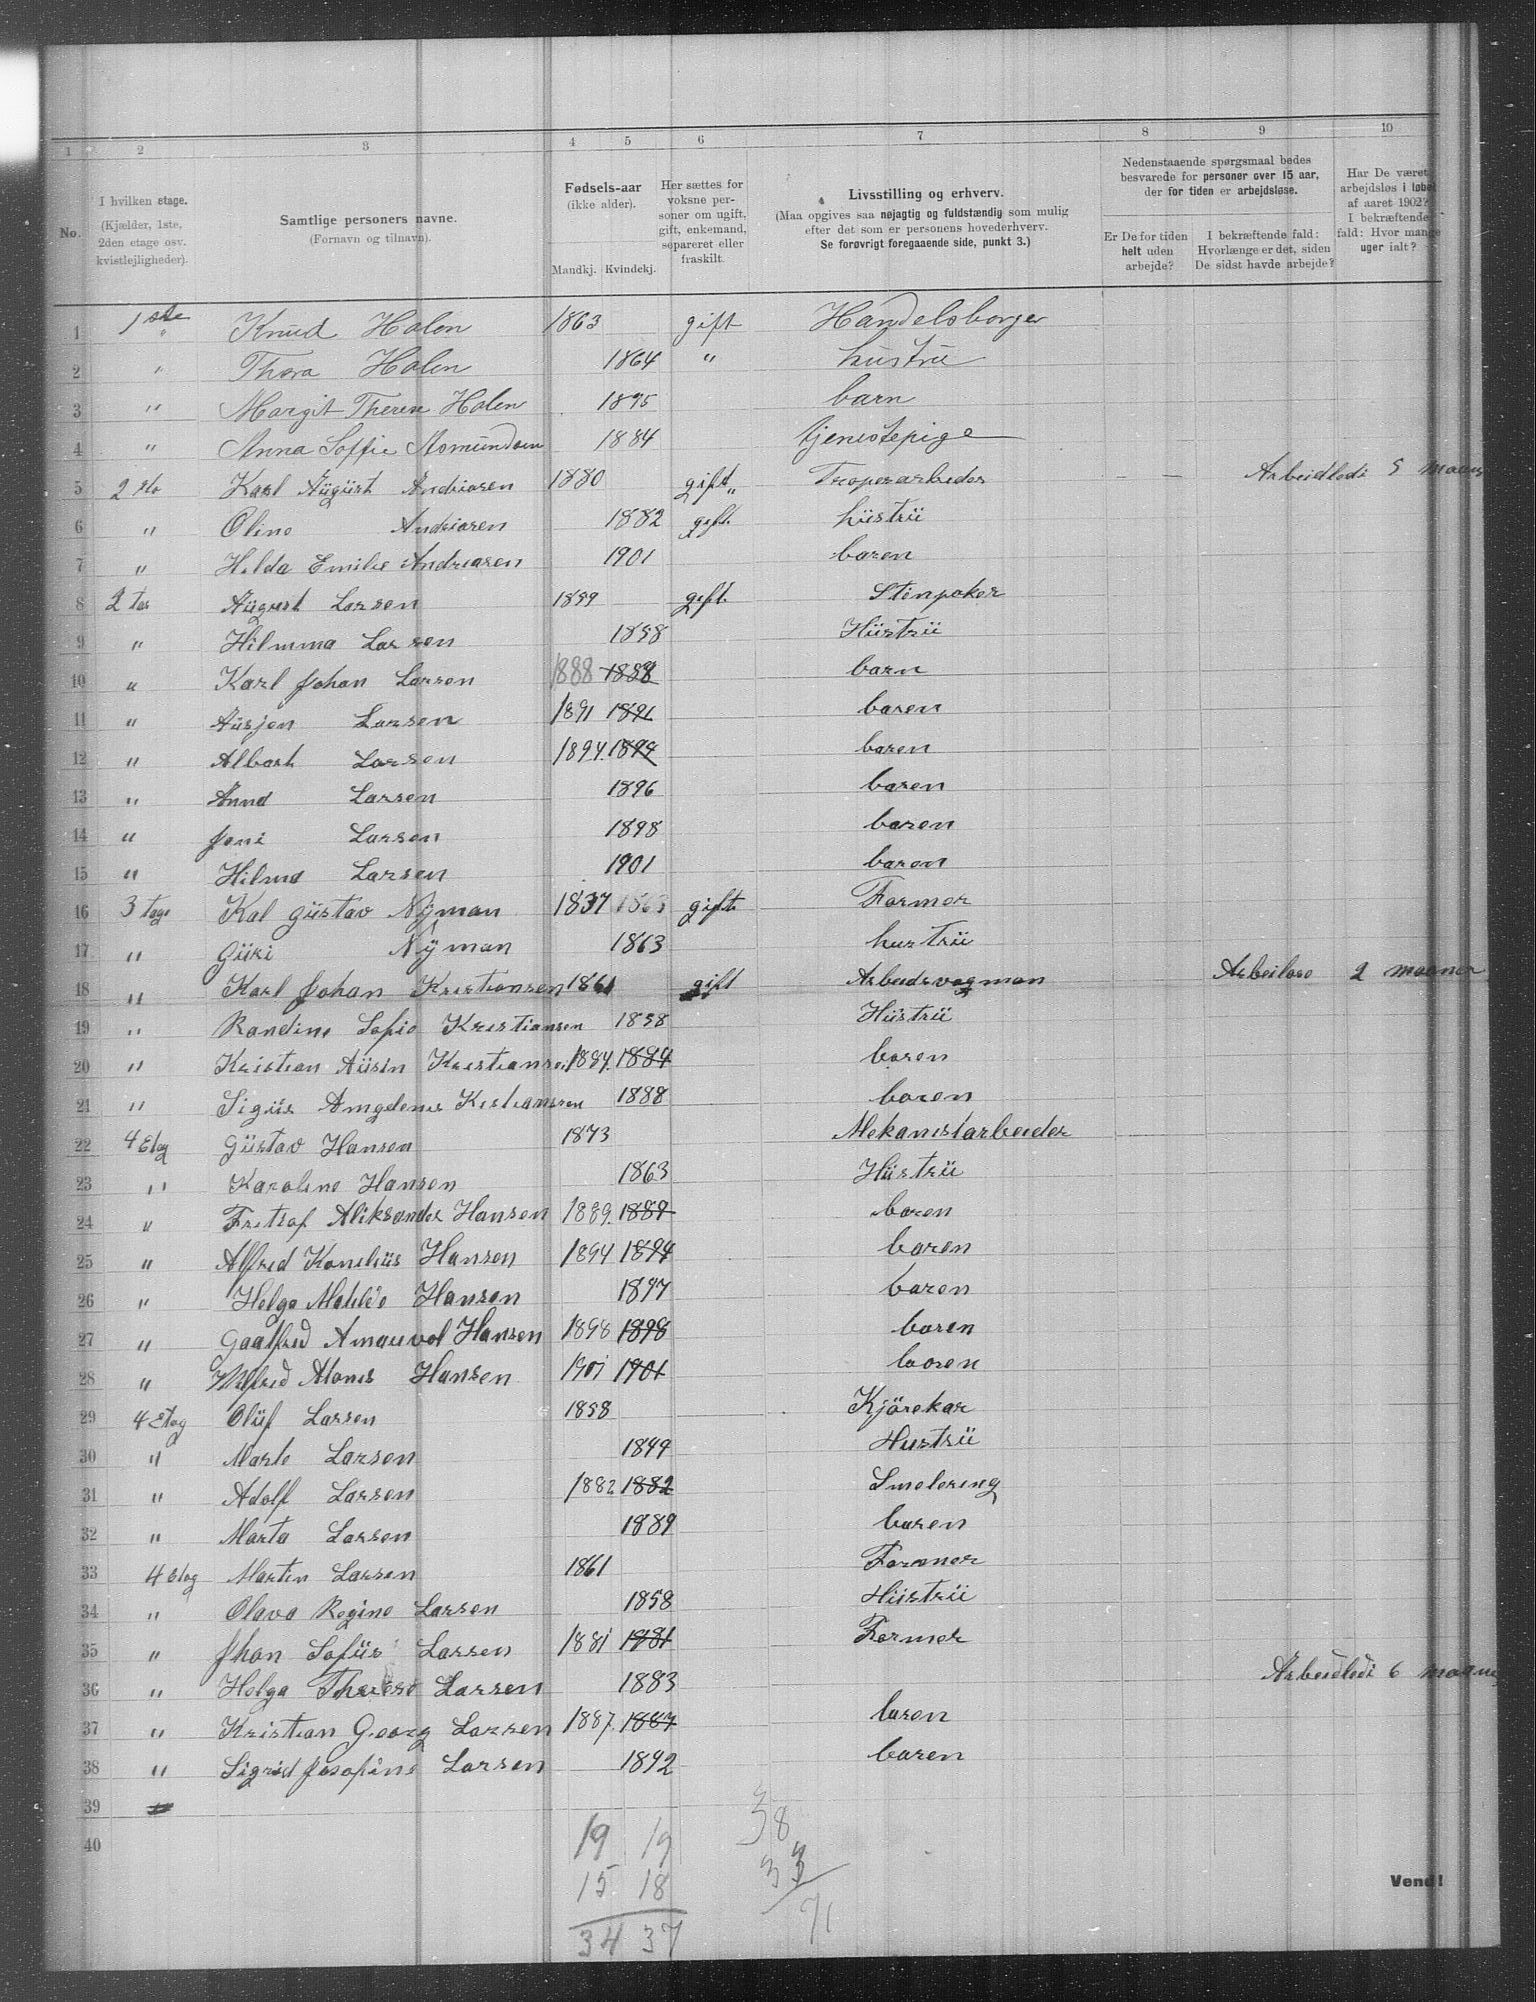 1 2 3 4 5 6 7 8 9 10
No.
I hvilken etage.
(Kjælder, 1ste,
2den etage osv.
kvistlejligheder).
Samtlige personers navne.
(Fornavn og tilnavn).
Fødsels-aar
(ikke alder).
Mandkj. Kvindekj.
Her sættes for
voksne per-
soner om ugift,
gift, enkemand,
separeret eller
fraskilt.
Livsstilling og erhverv.
(Maa opgives saa nøjagtig og fuldstændig som mulig
efter det som er personens hovederhverv.
Se forøvrigt foregaaende side, punkt 3.)
Nedenstaaende spørgsmaal bedes
besvarede for personer over 15 aar,
der for tiden er arbejdsløse.
Er De for tiden
helt uden
arbejde?
I bekræftende fald:
Hvorlænge er det, siden
De sidst havde arbejde?
Har De været
arbejdsløs i løbet
af aaret 1902?
I bekræftende
fald: Hvor mange
uger ialt?
1 1ste " Knud Holen 1863 gift Handelsborger
2 " Thora Holen 1864 " hustru
3 " Margit Therese Holen 1895 barn
4 " Anna Soffie Asmundsen 1884 tjenestepige
5 2 Karl August Andriasen 1880 gift " - - Arbeidledi 5 maaned
6 " Oline Andriasen 1882 gift hustrü
7 " Hilda Emilie Andreasen 1901 baren
8 2 August Larsen 1859 gift Stenpoker
9 " Hilmma Larsen 1858 Hüstrü
10 " Karl Johan Larsen 1888 1888 barn
11 " Larsen 1891 1891 baren
12 " Albart Larsen 1894. 1894 baren
13 " Anna Larsen 1896 baren
14 " Jeni Larsen 1898 baren
15 " Hilma Larsen 1901 baren
16 3 tage Kal Güstav Nÿman 1837 1863 gift Formor
17 " Güri Nÿman 1863 hustrü
18 " Karl Johan Kristiansen 1861 gift Arbeidsvogman Arbeilose 2 maaner
19 " Randine Sofie Kristiansen 1858 Hüstrü
20 " Kristian Kristiansen 1884. 1884 baren
21 " 1888 baren
22 4 Etag Güstav Hansen 1873 Mekanistarbeider
23 " Karoline Hansen 1863 Hüstrü
24 " Fritjof Aliksander Hansen 1889. 1889 baren
25 " Alfred Konelius Hansen 1894 1894 baren
26 " Helga Matilde Hansen 1897 baren
27 " Hansen 1898 1898 baren
28 " Hansen 1901 1901 baren
29 4 Etag Olüf Larsen 1858 Kjörekar
30 " Marte Larsen 1849 Hustrü
31 " Adolf Larsen 1882 1882
32 " Marta Larsen 1889 baren
33 4 etag Martin Larsen 1861 Formor
34 " Olava Regine Larsen 1858 Hüstrü
35 " Jhan Sofüs Larsen 1881 1881 Formor
36 " Helga Therese Larsen 1883 Arbeidledi 6 maane
37 " Kristian Georg Larsen 1887. 1887 baren
38 " Sigrid Josofine Larsen 1892 baren
39
40
19 19 38
15 18 33
34 37 71
Vend!